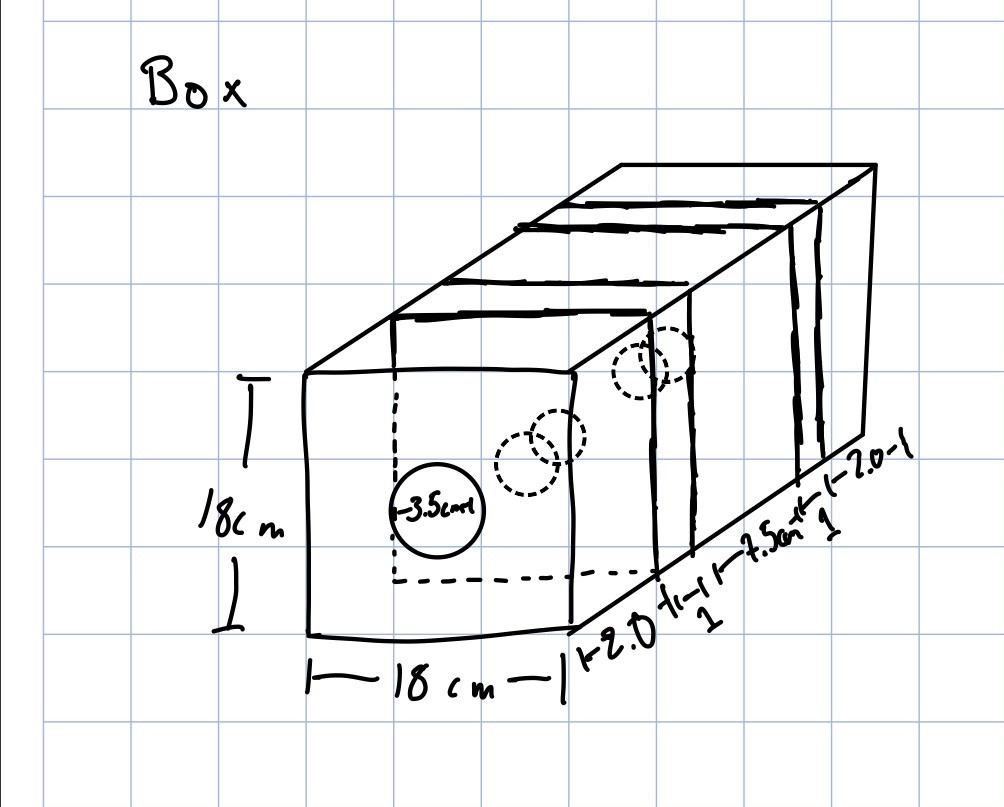 Box
3.5cm
18cm
18 cm
2.0
1
7.5cm
1
2.0